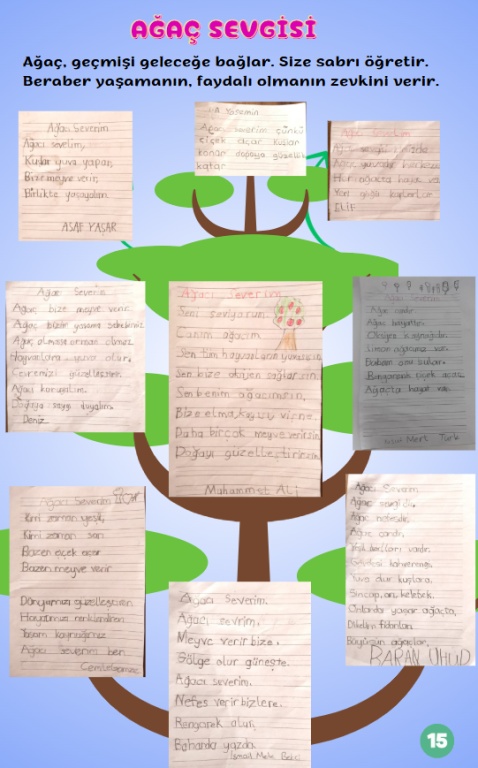 AĞAÇ SEVGİSİ
Ağaç, geçmişi geleceğe bağlar. Size sabrı öğretir.
Beraber yaşamanın, faydalı olmanın zevkini verir.
Ağacı Severim
Ağacı sevelim,
Kuşlar yuva yapan,
Bize meyve verir,
Birlikte yaşayalım.
ASAF YAŞAR
Ağacı severim çünkü
çiçek açar kuşlar
konar doğaya güzellik
katar
ELİF
Ağacı Severim
Ağaç bize meyve verir.
Ağaç bizim yaşama sebebimiz
Ağaç olmazsa orman olmaz
Hayvanlara yuva olur,
Çevremizi güzelleştirir.
Ağacı koruyalım.
Doğaya saygı duyalım.
Deniz
Ağacı Severim
Seni seviyorum
Canım ağacım
Sen tüm hayvanların yuvasısın
Sen bize oksijen sağlarsın
Sen benim ağacımsın,
Bize elma, kuşu, vişne
Daha birçok meyve verirsin
Doğayı güzelleştirirsin
Muhammet Ali
Ağaç hayattır.
Oksijen kaynağıdır.
Limon ağacımız var.
Babam onu sular.
Rengarenk çiçek açar
Ağaçta hayat var.
Mert Türk
Ağacı Severim
Kimi zaman yeşil,
Kimi zaman sarı
Bazen çiçek açar
Bazen meyve verir
Dünyamızı güzelleştirir
Hayatımızı renklendirir
Yaşam kaynağımız
Ağacı severim ben
Ağacı Severim.
Ağacı severim,
Meyve verir bize.
Gölge olur güneşte.
Ağacı severim.
Nefes verir bizlere.
Rengarek olur,
Baharda yazda.
İsmail Mete
Ağacı Severim
Ağaç sevgidir,
Ağaç nefesdir,
Ağaç candır.
Yeşil dalları vardır.
Gövdesi kahverengi.
Yuva olur kuşlara,
Sincap, arı, kelebek.
Onlarda yaşar ağaçta,
Dikelim fidanları.
Büyüsün ağaçlar.
BARAN UHUD
15